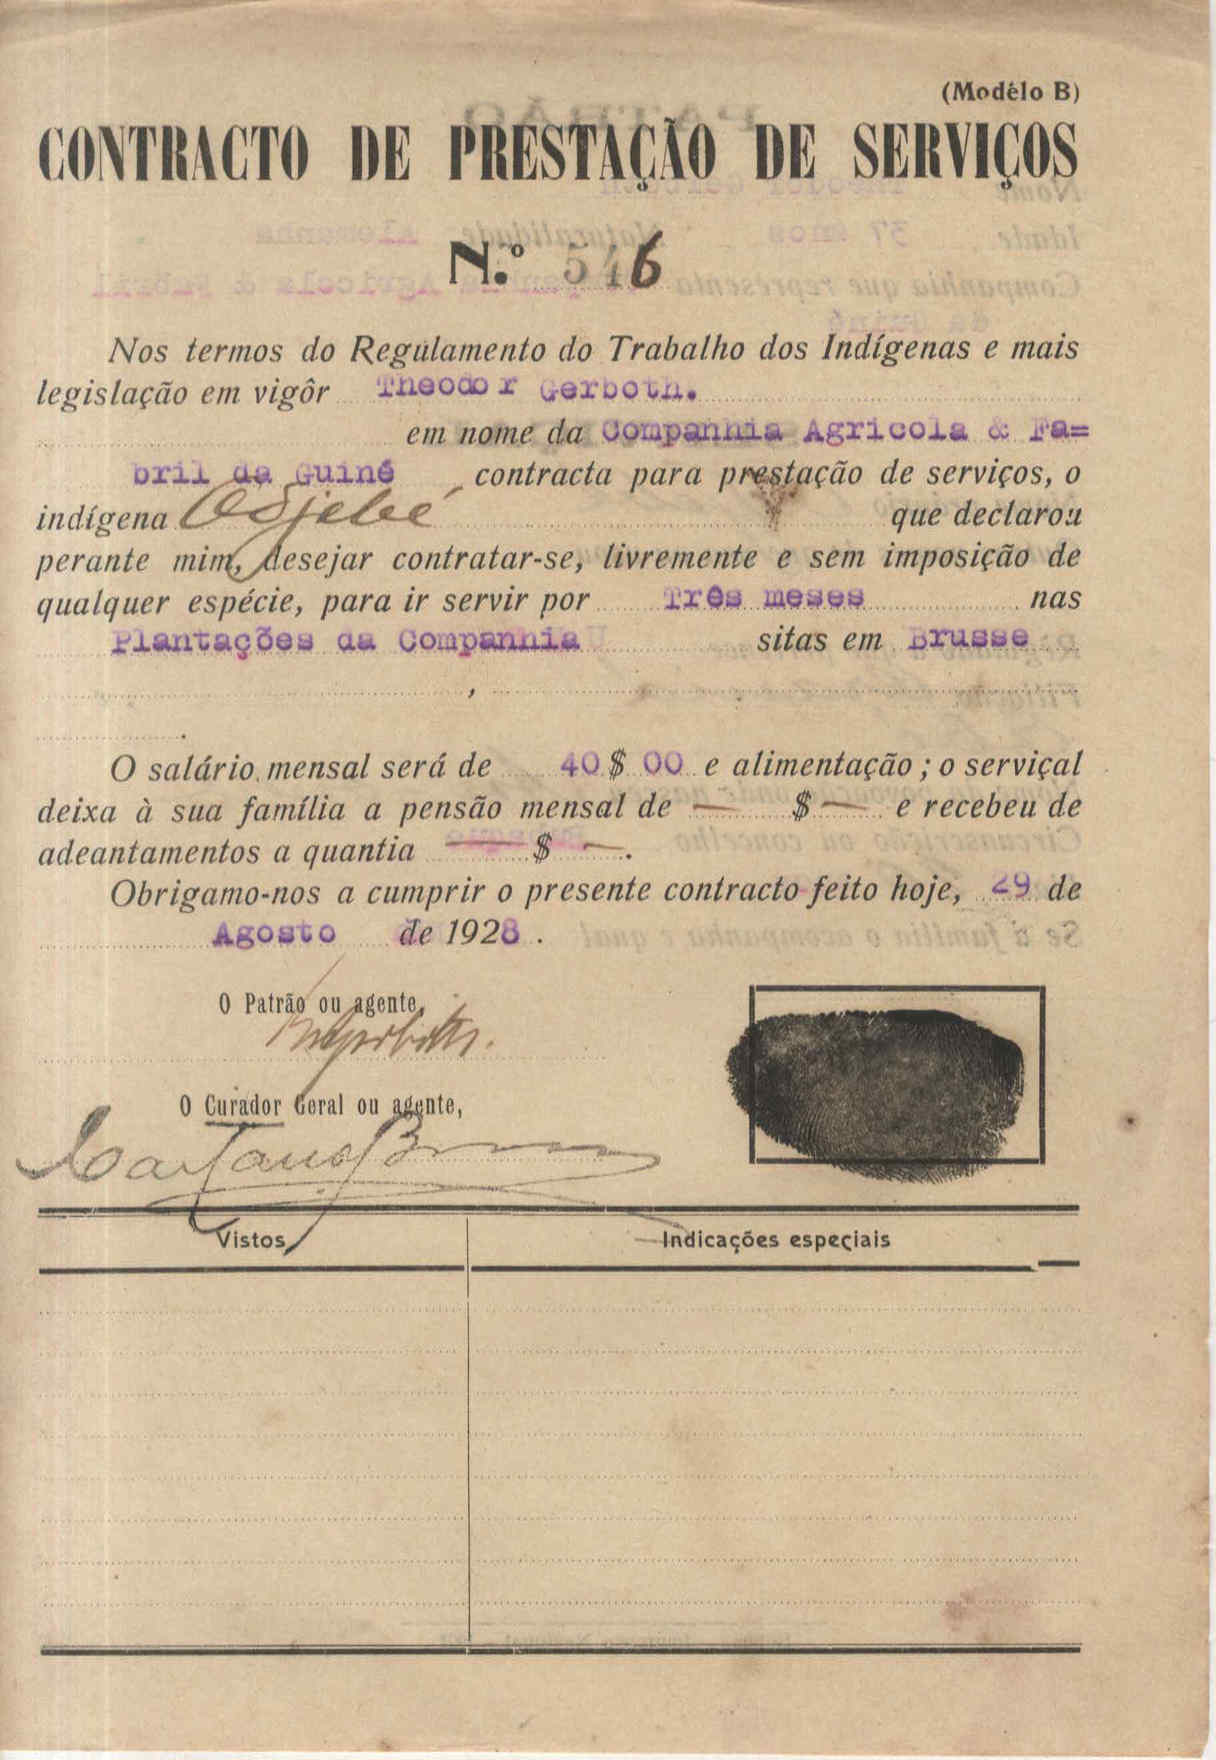 (Modêlo B)
CONTRACTO DE PRESTAÇÃO DE SERVIÇOS
N.º 546
Nos termos do Regulamento do Trabalho dos Indígenas e mais
legislação em vigôr Theodor Gerboth.
em nome da Companhia Agricola & Fa=
bril da Guiné contracta para prestação de serviços, o
indígena que declarou
perante mim, desejar contratar-se, livremente e sem imposição de
qualquer espécie, para ir servir por Três meses nas
Plantações da Companhia sitas em Brusse
,
.
O salário mensal será de 40 $ 00 e alimentação; o serviçal
deixa à sua família a pensão mensal de — $ — e recebeu de
adeantamentos a quantia — $ —.
Obrigamo-nos a cumprir o presente contracto feito hoje, 29 de
Agosto de 1928.
O Patrão ou agente,
O Curador Geral ou agente,
Vistos
Indicações especiais